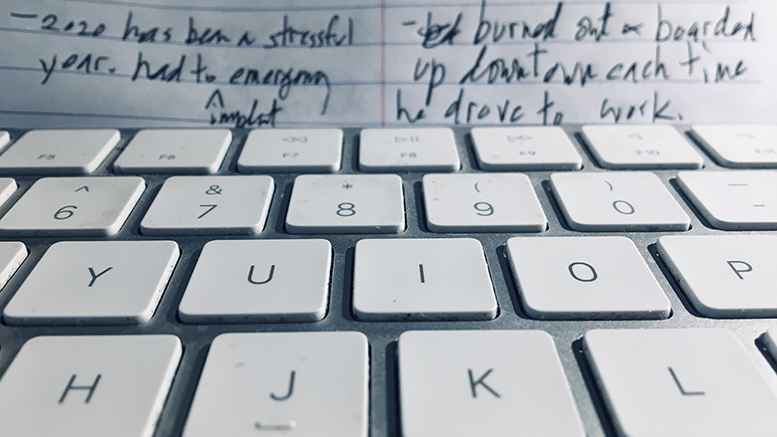 -2020 has been a stressful
year. had to emergency
^
implant
- burned out & boarded
up downtown each time
he drove to work.
F5 F6 F7 F8 F9 F10 F11
^ & * ( ) _
6 7 8 9 0 -
Y U I O P
H J K L